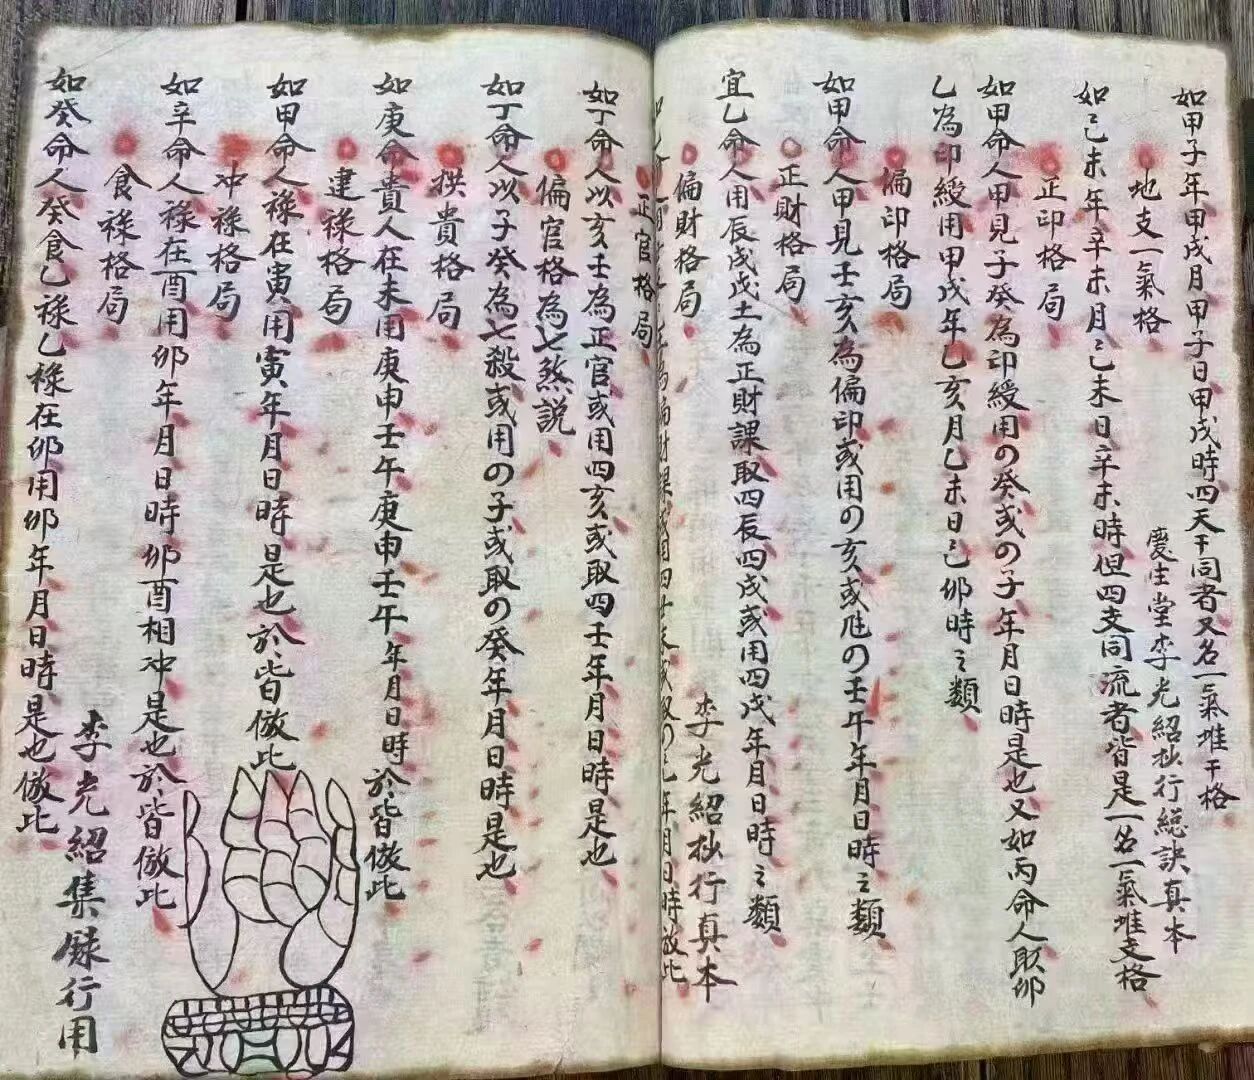 如甲子年甲戌月甲子日甲戌時四天干同者又名一氣堆干格
慶生堂李光紹拙行總訣真本
地支一氣格
如己未年辛未月己未日辛未時但四支同流者皆是一名一氣堆支格
正印格局
如甲命人甲見子癸為印綬用の癸或の子年月日時是也又如丙命人取卯
乙為印綬用甲戌年乙亥月乙未日己卯時之類
偏印格局
如甲命人甲見壬亥為偏印或用の亥或の壬午年月日時之類
正財格局
宜乙命人用辰戌戊土為正財課取四辰四戌或用四戊年月日時之類
偏財格局
李光紹拙行真本
年月日時倣此
正官格局
如丁命人以亥壬為正官或用四亥或取四壬年月日時是也
偏官格為七煞説
如丁命人以子癸為七殺或用の子或取の癸年月日時是也
拱貴格局
如庚命貴人在未用庚申壬午庚申壬午年月日時於皆倣此
建祿格局
如甲命人祿在寅用寅年月日時是也於皆倣此
冲祿格局
如辛命人祿在酉用卯年月日時卯酉相冲是也於皆倣此
食祿格局
如癸命人癸食乙祿乙祿在卯用卯年月日時是也倣此
李光紹集錄行用